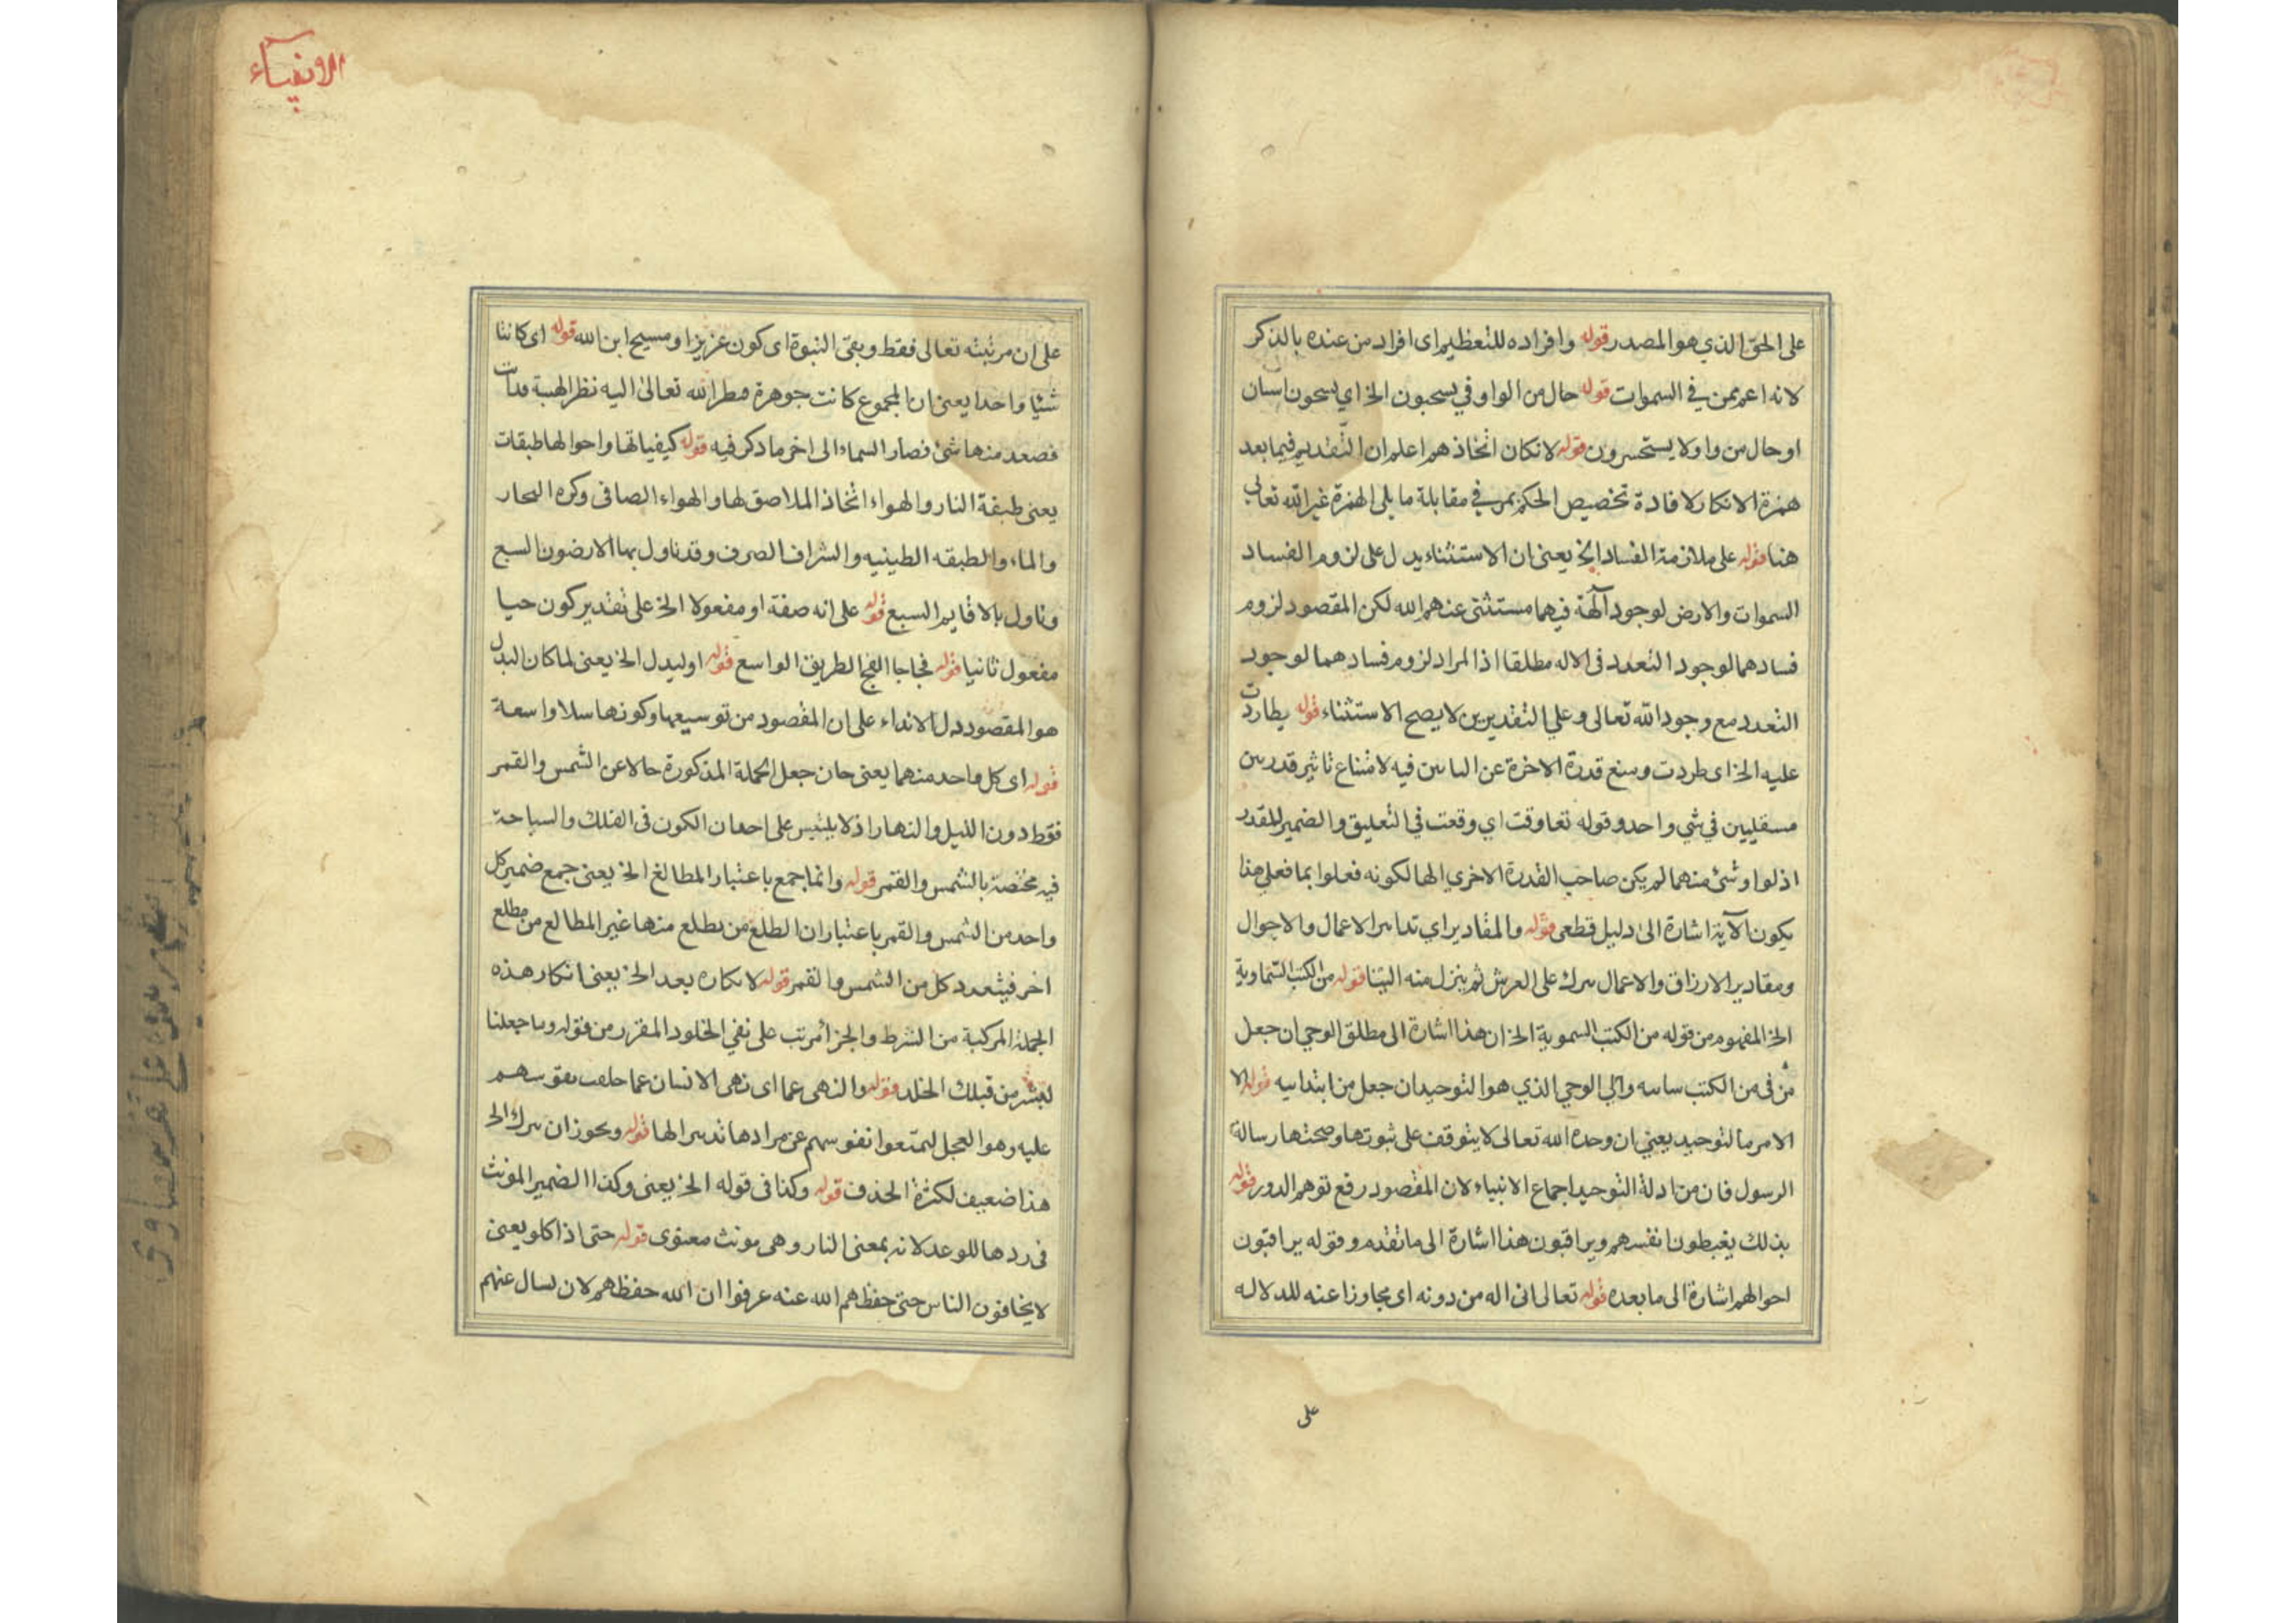 على الحق الذي هو المصدر قوله وافراده للتعظيم اى افراد من عنده بالذكر
لانه اعم ممن في السموات قوله حال من الواو في يسبحون الخ اي يسبحون
او حال من واو لا يستحسرون قوله لانكان اتخاذهم اعلم ان التقديم فيما بعد
همزة الانكار لافادة تخصيص الحكم بمن في مقابلة ما يلى الهمزة غير الله تعالى
هنا قوله على ملازمة الفساد الخ يعنى ان الاستثناء يدل على لزوم الفساد
السموات والارض لوجود آلهة فيهما مستثنى عنهم الله لكن المقصود لزوم
فسادهما لوجود التعدد فى الاله مطلقا اذ المراد لزوم فسادهما لوجود
التعدد مع وجود الله تعالى وعلي التقديرين لا يصح الاستثناء قوله يطاردت
عليه الخ اى طردت ومنع قدرة الاخرة عن فيه لامتناع تاثير قدرتين
مستقليين في شي واحد وقوله تعاوقت اي وقعت في التعليق والضمير المقدر
اذ لو اوشئ منهما لم يكن صاحب القدرة الاخري الها لكونه فعلوا بما فعلي هذا
يكون الآية اشارة الى دليل قطعى قوله والمقادير اي الاعمال والاحوال
ومقادير الارزاق والاعمال على العرش ثم ينزل منه الينا قوله من الكتب السماوية
الخ المفهوم من قوله من الكتب السموية الخ ان هذا اشارة الى مطلق الوحي ان جعل
من فى من الكتب والي الوحي الذي هو التوحيد ان جعل من ابتدايه قوله الا
الامر بالتوحيد يعني ان وحده الله تعالى لا يتوقف على ثبوتها وصحتها رسالة
الرسول فان من ادلة التوحيد اجماع الانبياء لان المقصود رفع توهم الدور قوله
بذلك يغبطون انفسهم ويراقبون هذا اشارة الى ما تقدم وقوله يراقبون
احوالهم اشارة الى ما بعده قوله تعالى انى اله من دونه اى مجاوزا عنه للدلاله
على
الانبياء
على ان مرتبته تعالى فقط وبقى النبوة اى كون عزيزا ومسيح ابن الله قوله اى كانتا
شئيا واحدا يعنى ان المجموع كانت جوهرة فنظر الله تعالى اليه نظر الهيبة
فصعد منها شئ فصار السماء الى اخر ما ذكر فيه قوله كيفياتها واحوالها طبقات
يعنى طبقة النار والهواء اتخاذ الملاصق لها والهواء الصافى وكره البحار
والماء والطبقه الطينيه والصرف وقد تاول بها الارضون السبع
وتاول بالاقاليم السبع قوله على انه صفة او مفعولا الخ على تقدير كون حيا
مفعول ثانيا قوله فجاجا الفج الطريق الواسع قوله اوليدل الخ يعنى لما كان البدل
هو المقصود دل الابتداء على ان المقصود من توسيعها وكونها سبلا واسعة
قوله اى كل واحد منهما يعنى جعل الجملة المذكورة حالا عن الشمس والقمر
فقط دون الليل والنهار اذ لا يلتبس على احد ان الكون فى الفلك والسباحة
فيه مختصة بالشمس والقمر قوله وانما جمع باعتبار المطالع الخ يعنى جمع ضمير كل
واحد من الشمس والقمر باعتبار ان الطلع من يطلع منها غير المطالع من مطلع
اخر فيتعدد كل من الشمس والقمر قوله لانكاره بعد الخ يعنى انكار هذه
الجملة المركبة من الشرط والجزأ مرتب على نفي الخلود المقرر من قوله وما جعلنا
لبشر من قبلك الخلد قوله والنهى عما اى نهى الانسان عما
عليه وهو العجل ليمتعوا نفوسهم عن مرادها قوله ويجوز ان يترك الخ
هذا ضعيف لكثرة الحذف قوله وكذا فى قوله الخ يعنى وكذا الضمير المونث
فى ردها للوعد لانه بمعنى النار وهى مونث معنوى قوله حتى اذا كلو يعنى
لا يخافون الناس حتى حفظهم الله عنه عرفوا ان الله حفظهم لان لسال عنهم